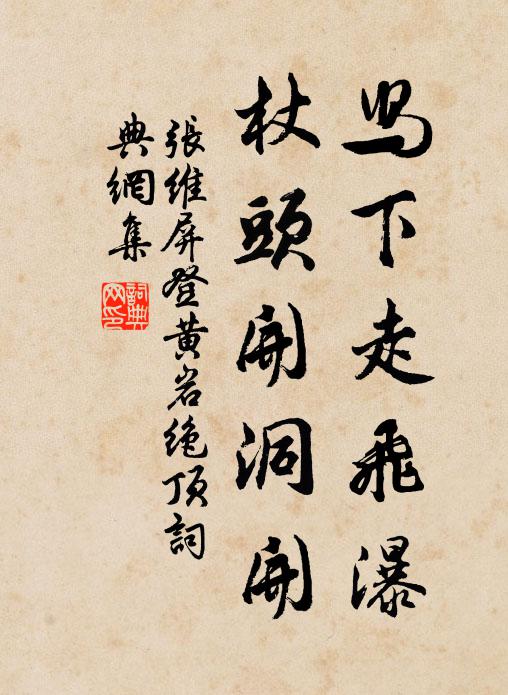 舄下走飛瀑
杖頭開洞開
張維屏登黄岩絶頂詞
典網集
詞典
网印